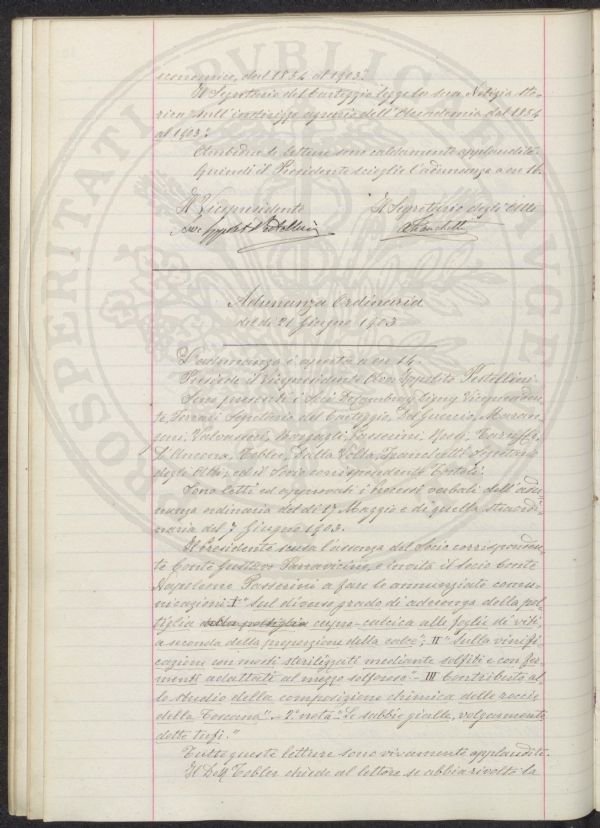 economico, dal 1834 al 1903."
Il Segretario del Carteggio legge la sua Notizia sto-
rica sull'indirizzo agrario dell'Accademia dal 1834
al 1903."
Ambedue le letture sono caldamente applaudite.
Quindi il Presidente scioglie l'adunanza a ore 16.
Il Vicepresidente
Il Segretario degli Atti
Adunanza Ordinaria
del dì 21 Giugno 1903
L'adunanza è aperta a ore 14.
Presiede il Vicepresidente Ippolito Pestellini.
Sono presenti i Soci Vicepresiden-
te, Ferrari Segretario del Carteggio, Del Guercio, Marcon-
cini, Valvassori, Passerini,
D'Ancona, Tobler, Dalla Volta, Franchetti Segretario
degli Atti, ed il Socio corrispondente
Sono letti ed approvati i processi verbali dell'adu-
nanza ordinaria del dì 17 Maggio e di quella straordi-
naria del 7 Giugno 1903.
Il Presidente scusa l'assenza del Socio corrisponden-
te Conte Gustavo Parravicini, e invita il socio Conte
Napoleone Passerini a fare le annunziate comu-
nicazioni: I° "Sul diverso grado di aderenza della pol-
tiglia cupro-calcica alle foglie di viti,
a seconda della proporzione della calce"; II° "Sulla vinifi-
cazione con mosti sterilizzati mediante solfiti e con fer-
menti adattati al mezzo solforoso" - III° Contributo al
lo studio della composizione chimica delle roccie
della Toscana". - 2ª nota "Le sabbie gialle, volgarmente
dette tufi."
Tutte queste letture sono vivamente applaudite.
Il Tobler chiede al lettore se abbia rivolto la